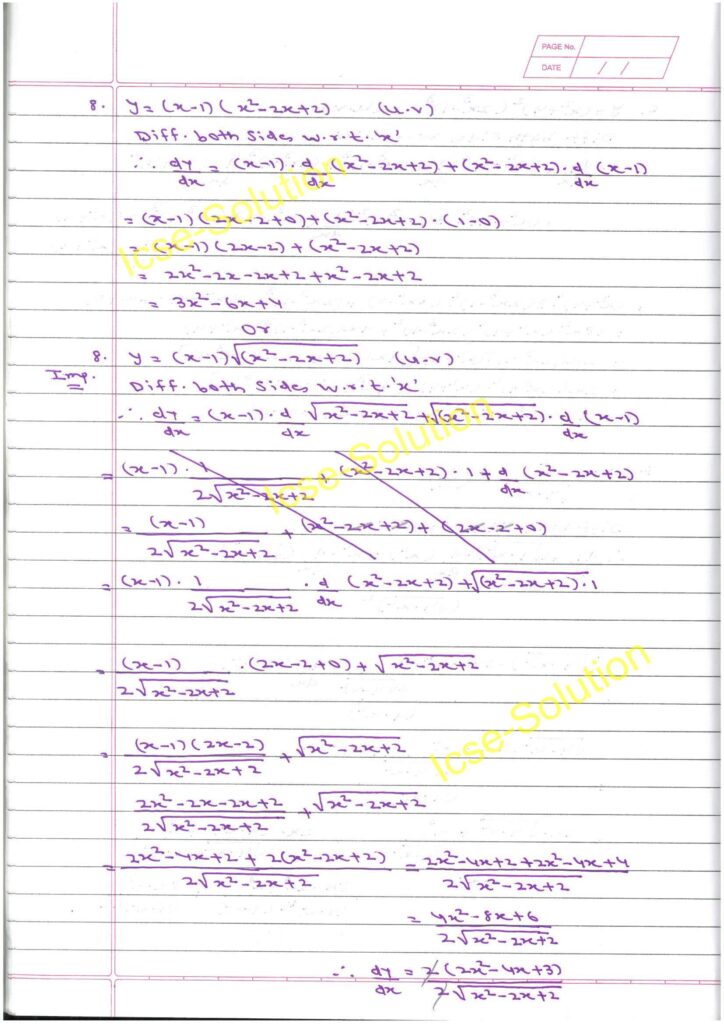 PAGE No.
DATE / /
8. y = (x-1)(x²-2x+2) (u.v)
Diff. both sides w.r.t. 'x'
∴ dy/dx = (x-1)·d/dx (x²-2x+2) + (x²-2x+2)·d/dx (x-1)
= (x-1)(2x-2+0) + (x²-2x+2)·(1-0)
= (x-1)(2x-2) + (x²-2x+2)
= 2x²-2x-2x+2+x²-2x+2
= 3x²-6x+4
Or
8. y = (x-1)√(x²-2x+2) (u.v)
Imp.
Diff. both sides w.r.t. 'x'
∴ dy/dx = (x-1)·d/dx √x²-2x+2 + √(x²-2x+2)·d/dx (x-1)
= (x-1)·1/2√x²-2x+2 + (x²-2x+2)·1 + d/dx (x²-2x+2)
= (x-1)/2√x²-2x+2 + (x²-2x+2) + (2x-2+0)
= (x-1)·1/2√x²-2x+2 · d/dx (x²-2x+2) + √(x²-2x+2)·1
= (x-1)/2√x²-2x+2 ·(2x-2+0) + √x²-2x+2
= (x-1)(2x-2)/2√x²-2x+2 + √x²-2x+2
2x²-2x-2x+2/2√x²-2x+2 + √x²-2x+2
= 2x²-4x+2 + 2(x²-2x+2)/2√x²-2x+2 = 2x²-4x+2+2x²-4x+4/2√x²-2x+2
= 4x²-8x+6/2√x²-2x+2
∴ dy/dx = 2(2x²-4x+3)/2√x²-2x+2
Icse-Solution
Icse-Solution
Icse-Solution